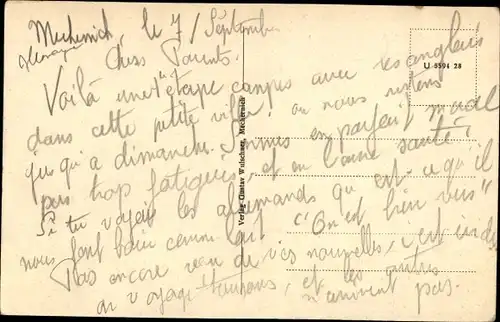 Mechernich, le 7 / Septembre
Allemagne
Chers Parents.
Voilà une 1e étape campés avec des anglais
dans cette petite ville, où nous restons
jusqu'à dimanche. Sommes en parfait moral
pas trop fatigués, et en bonne santé!
Si tu voyais les allemands qui est-ce qu'il
nous font comme
"On est bien vus"
Pas encore reçu de vos nouvelles, c'est
on voyage toujours, et les autres
n'arrivent pas.
U 5594 28
Verlag Gustav Wulschner, Mechernich